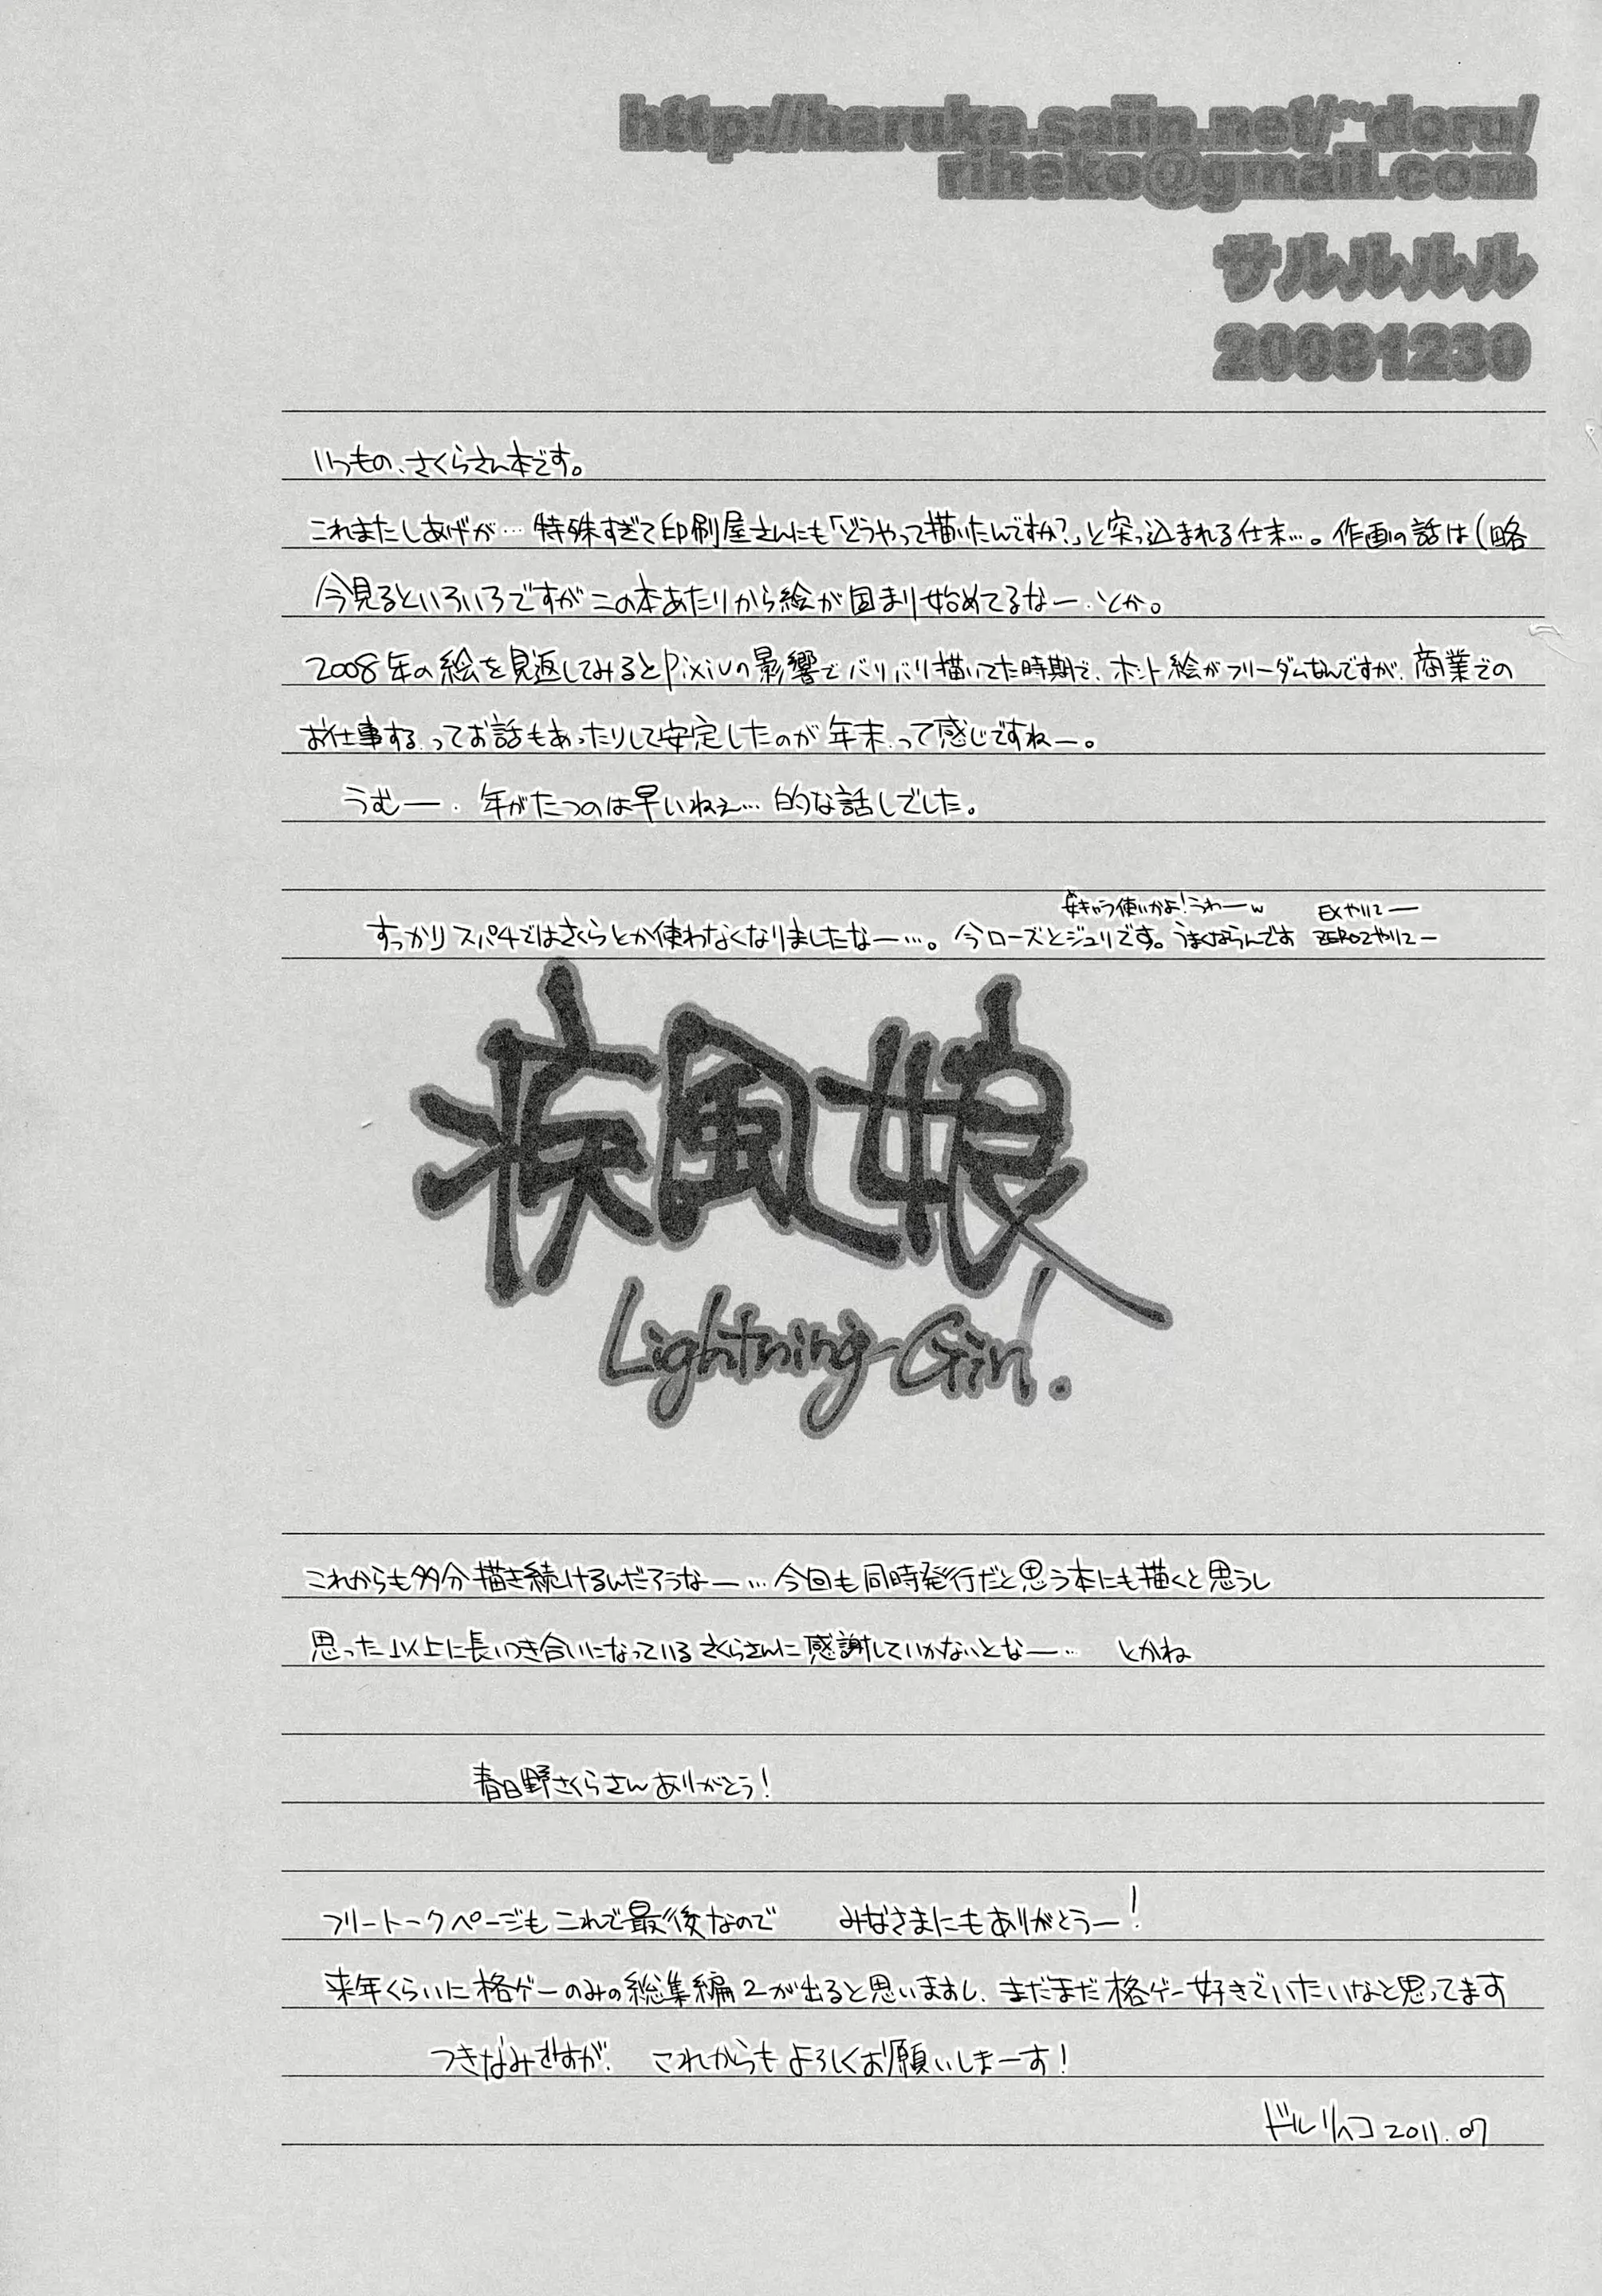 http://haruka.saiin.net/~doru/
riheko@gmail.com
サルルルル
20081230
いつもの、さくらさん本です。
これまたしあげが…特殊すぎて印刷屋さんにも「どうやって描いたんですか?」と突っ込まれる仕末…。作画の話は(略
今見るといろいろですがこの本あたりから絵が固まり始めてるなー、とか。
2008年の絵を見返してみるとpixivの影響でバリバリ描いてた時期で、ホント絵がフリーダムなんですが、商業での
お仕事する、ってお話もあったりして安定したのが年末、って感じですねー。
うむー、年がたつのは早いねぇ…的な話しでした。
女キャラ使いかよ!うわーw EXやりてー
すっかりスパ4ではさくらとか使わなくなりましたなー…。今ローズとジュリです。うまくならんです ZERO2やりてー
疾風娘
Lightning-Girl.
これからも多分描き続けるんだろうなー…今回も同時発行だと思う本にも描くと思うし
思った以上に長いつき合いになっているさくらさんに感謝していかないとなー… とかね
春日野さくらさんありがとう!
フリートークページもこれで最後なので みなさまにもありがとうー!
来年くらいに格ゲーのみの総集編2が出ると思いますし、まだまだ格ゲー好きでいたいなと思ってます
つきなみですが、これからもよろしくお願いしまーす!
ドルリヘコ 2011.07